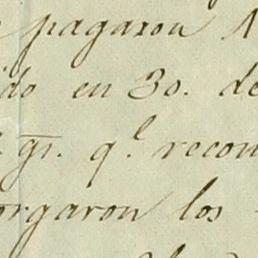 pagaron
ido en 30. de
gr. q.l recon
orgaron los